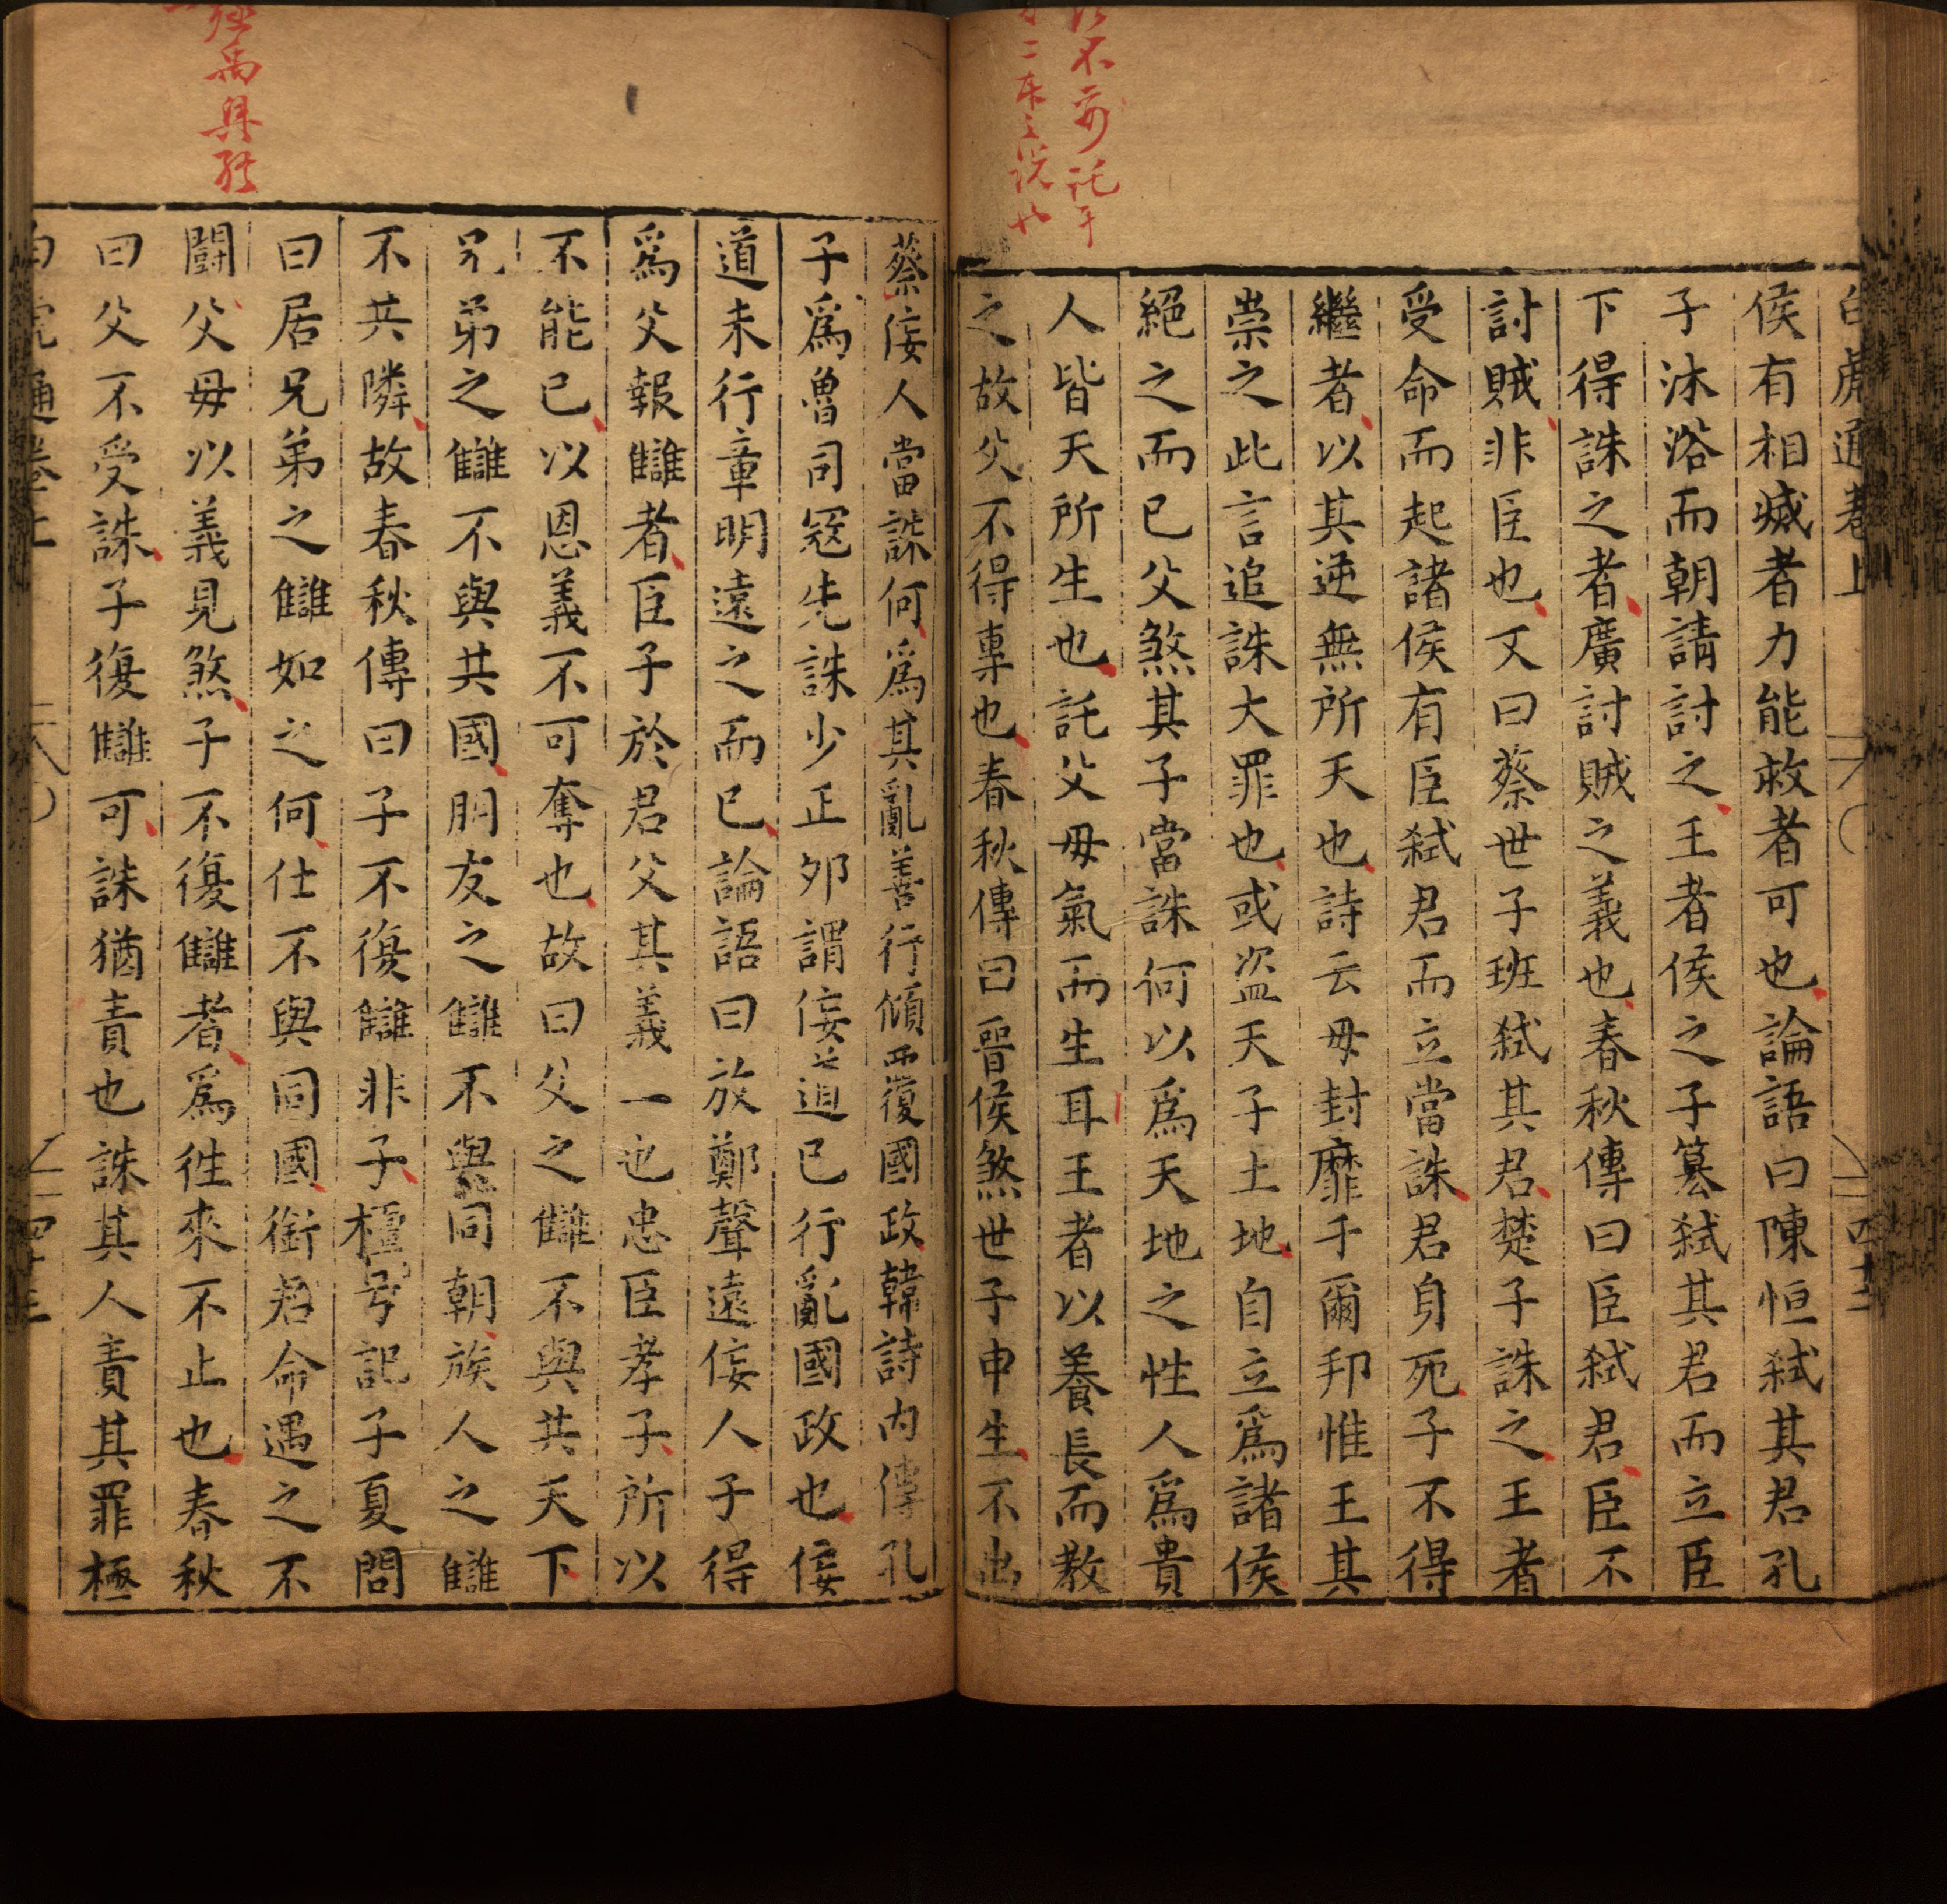 不可託于
二本之說
白虎通卷上
四十二
侯有相臧者力能救者可也論語曰陳恒弑其君孔
子沐浴而朝請討之王者侯之子簒弑其君而立臣
下得誅之者廣討賊之義也春秋傳曰臣弑君臣不
討賊非臣也又曰蔡世子班弑其君楚子誅之王者
受命而起諸侯有臣弑君而立當誅君身死子不得
繼者以其逆無所天也詩云毋封靡于爾邦惟王其
崇之此言追誅大罪也或盜天子土地自立爲諸侯
絕之而已父煞其子當誅何以爲天地之性人爲貴
人皆天所生也託父母氣而生耳王者以養長而教
之故父不得專也春秋傳曰晉侯煞世子申生不出
禹與
蔡佞人當誅何爲其亂善行傾覆國政韓詩內傳孔
子爲魯司冦先誅少正夘謂佞道已行亂國政也佞
道未行章明遠之而已論語曰放鄭聲遠佞人子得
爲父報讎者臣子於君父其義一也忠臣孝子所以
不能已以恩義不可奪也故曰父之讎不與共天下
兄弟之讎不與共國朋友之讎不與同朝族人之讎
不共隣故春秋傳曰子不復讎非子檀弓記子夏問
曰居兄弟之讎如之何仕不與同國銜君命遇之不
鬪父母以義見煞子不復讎者爲徃來不止也春秋
曰父不受誅子復讎可誅猶責也誅其人責其罪極
白虎通卷上